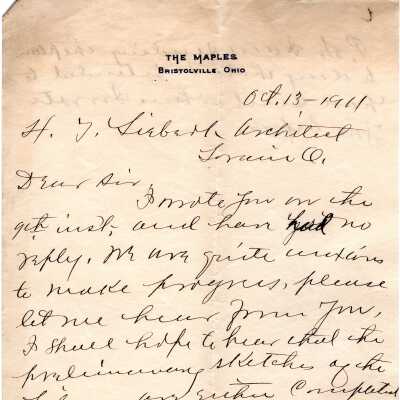 THE MAPLES
BRISTOLVILLE, OHIO
Oct. 13-1911
H. T. Liebert Architect
Lorain O.
Dear Sir
I wrote you on the
9th inst. and have had no
reply. We are quite anxious
to make progress, please
let me hear from you,
I shall hope to hear that the
preliminary sketches of the
are either Completed